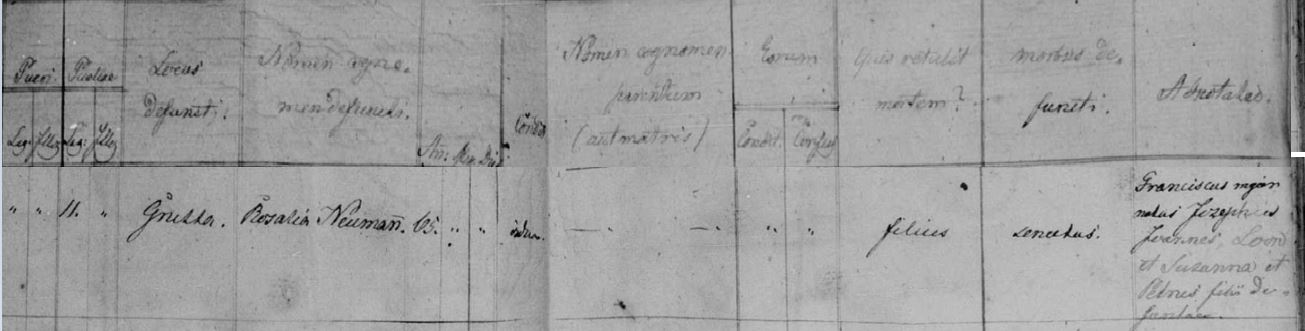 Pueri Puellae Locus defuncti. Nomen cogno- men defuncti. Nomen cognomen parentum (aut matris) Eorum Quis retulit mortem? morbus de- functi. Adnotatio.
Leg: Illeg Leg: Illeg An: Men Dies Condit. Condit. Confess
" " 11. " Grutta. Rosalia Neumañ. 65. " " vidua. — — " " filius senectus.
Franciscus major
natus Jozephus
Joannes, Leon
et Suzanna et
Petrus filii de-
functae.